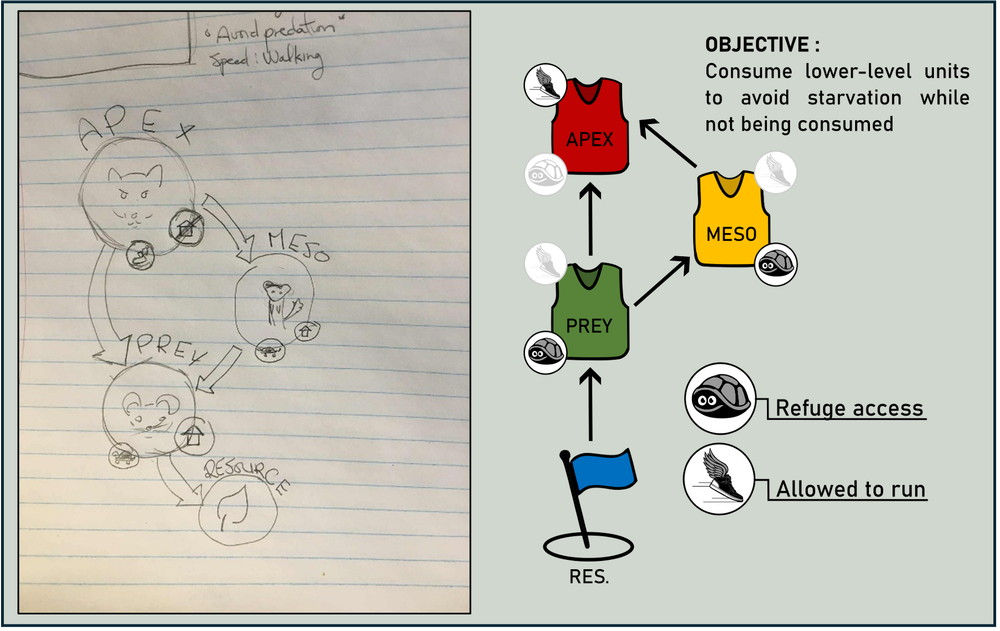 "Avoid predation"
Speed: Walking
APEX
MESO
PREY
RESOURCE
OBJECTIVE :
Consume lower-level units
to avoid starvation while
not being consumed
APEX
MESO
PREY
Refuge access
Allowed to run
RES.